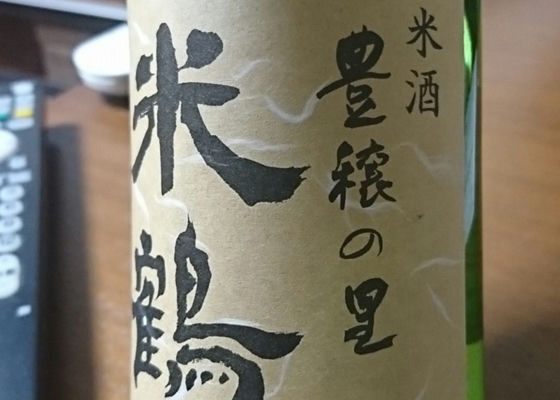 米酒
豊穣の里
米鶴